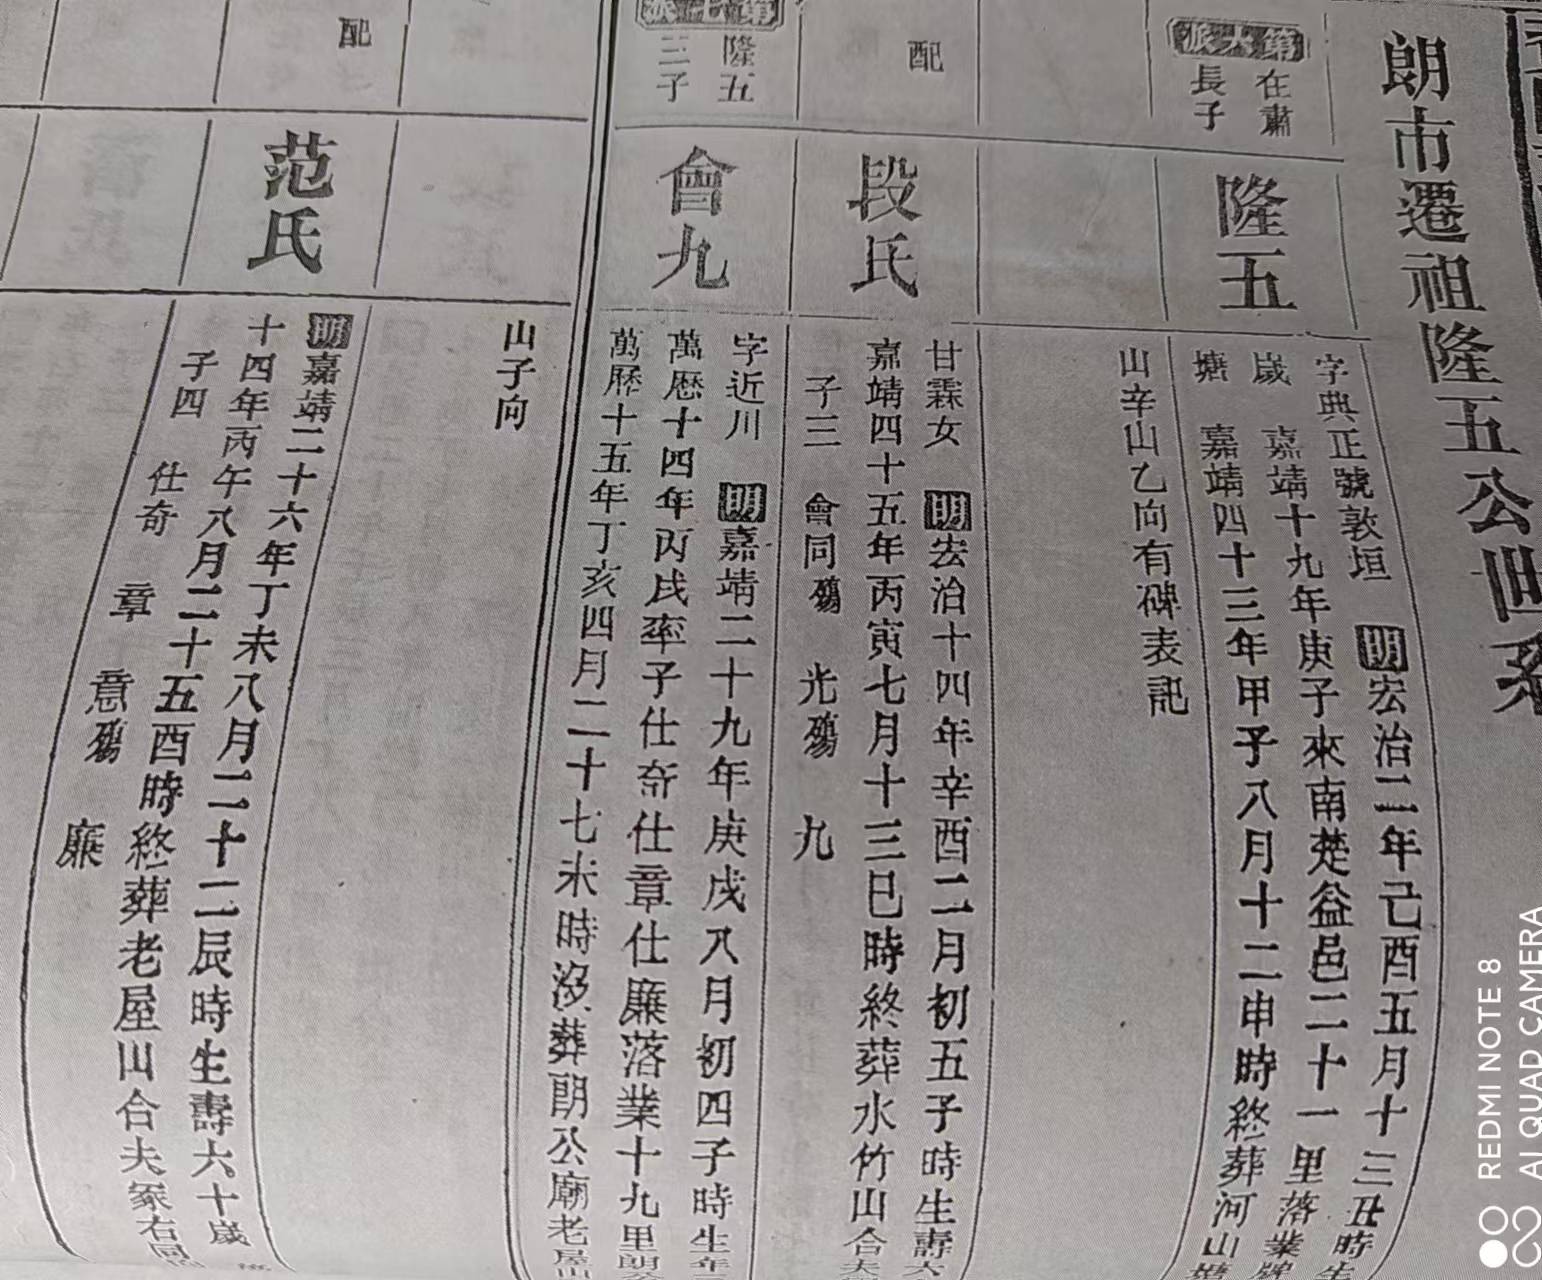 朗市遷祖隆五公世系
第六派
在肅
長子
隆五
字典正號敦垣 明宏治二年己酉五月十三丑時生
歲 嘉靖十九年庚子來南楚益邑二十一里落業
塘 嘉靖四十三年甲子八月十二申時終葬河山
山辛山乙向有碑表記
配
段氏
甘霖女 明宏治十四年辛酉二月初五子時生壽六
嘉靖四十五年丙寅七月十三巳時終葬水竹山合夫
子三 會同殤 光殤 九
第七派
隆五
三子
會九
字近川 明嘉靖二十九年庚戌八月初四子時生年
萬歷十四年丙戌率子仕奇仕章仕廉落業十九里朗公
萬歷十五年丁亥四月二十七未時沒葬朗公廟老屋山
山子向
配
范氏
明嘉靖二十六年丁未八月二十二辰時生壽六十歲
十四年丙午八月二十五酉時終葬老屋山合夫冢右同
子四 仕奇 章 意殤 廉
REDMI NOTE 8
AI QUAD CAMERA